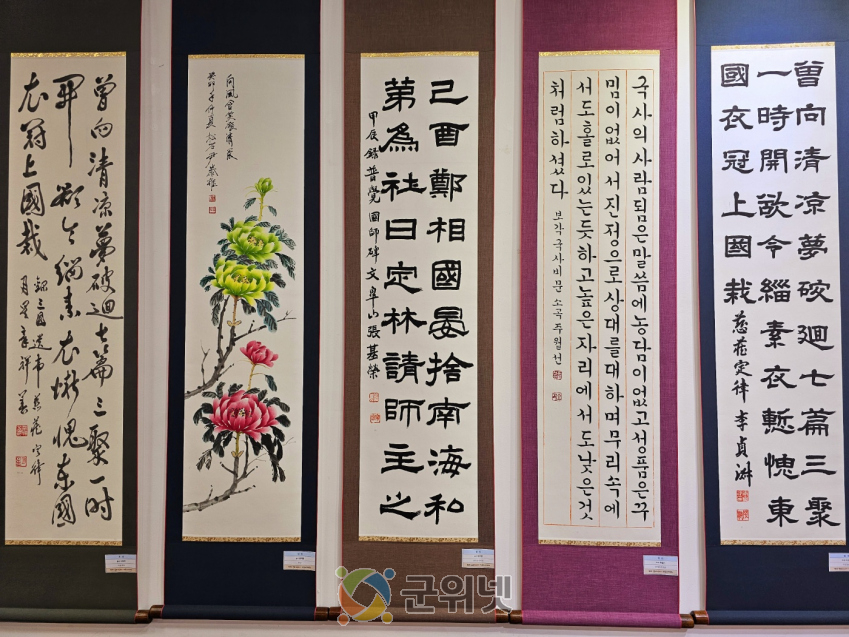 曾向清凉夢破迴七篇三聚一时
開欲令緇素衣慚愧東國
衣冠上國裁
錄三國遺事慈藏定律
癸卯年仲夏
己酉鄭相國晏捨南海和
第為社曰定林請師主之
甲辰錄普覺國師碑文 阜山張基榮
국사의사람됨은말씀에농담이없고서품은꾸
밈이없어서진정으로상대를대하며무리속에
서도홀로있는듯하고높은자리에서도낮은것
처럼하셨다 보각국사비문 소곡주월선
曾向清凉夢破迴七篇三聚
一時開欲令緇素衣慙愧東
國衣冠上國栽 慈藏定律 李貞淋
군위넷